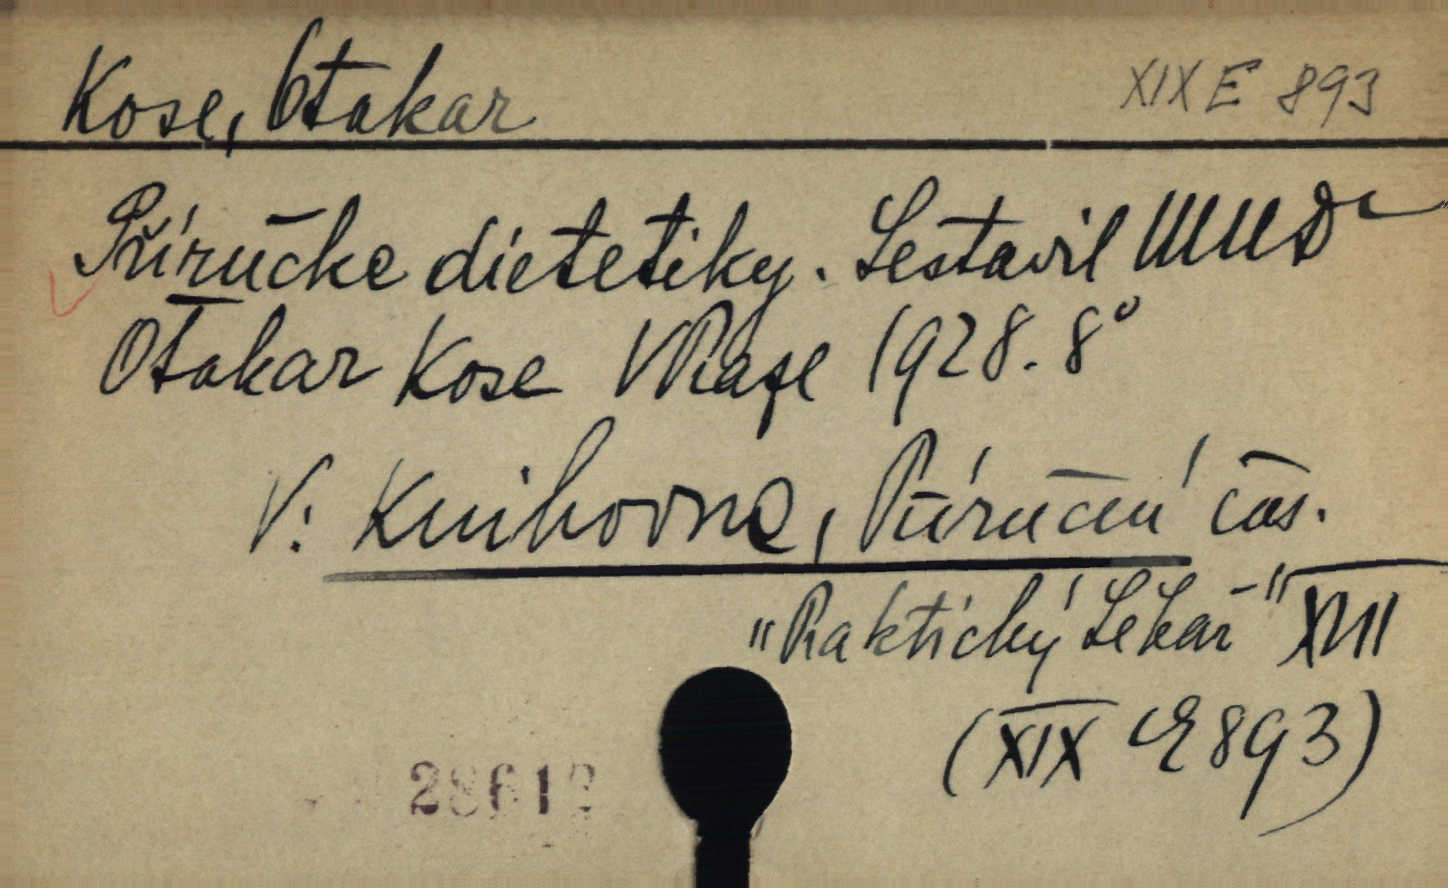 Kose, Otakar
XIX E 893
Příručka dietetiky. Sestavil MUDr
Otakar Kose V Praze 1928. 8°
V: Knihovna, Příruční čas.
"Praktický Lékař" XVII
(XIX E 893)